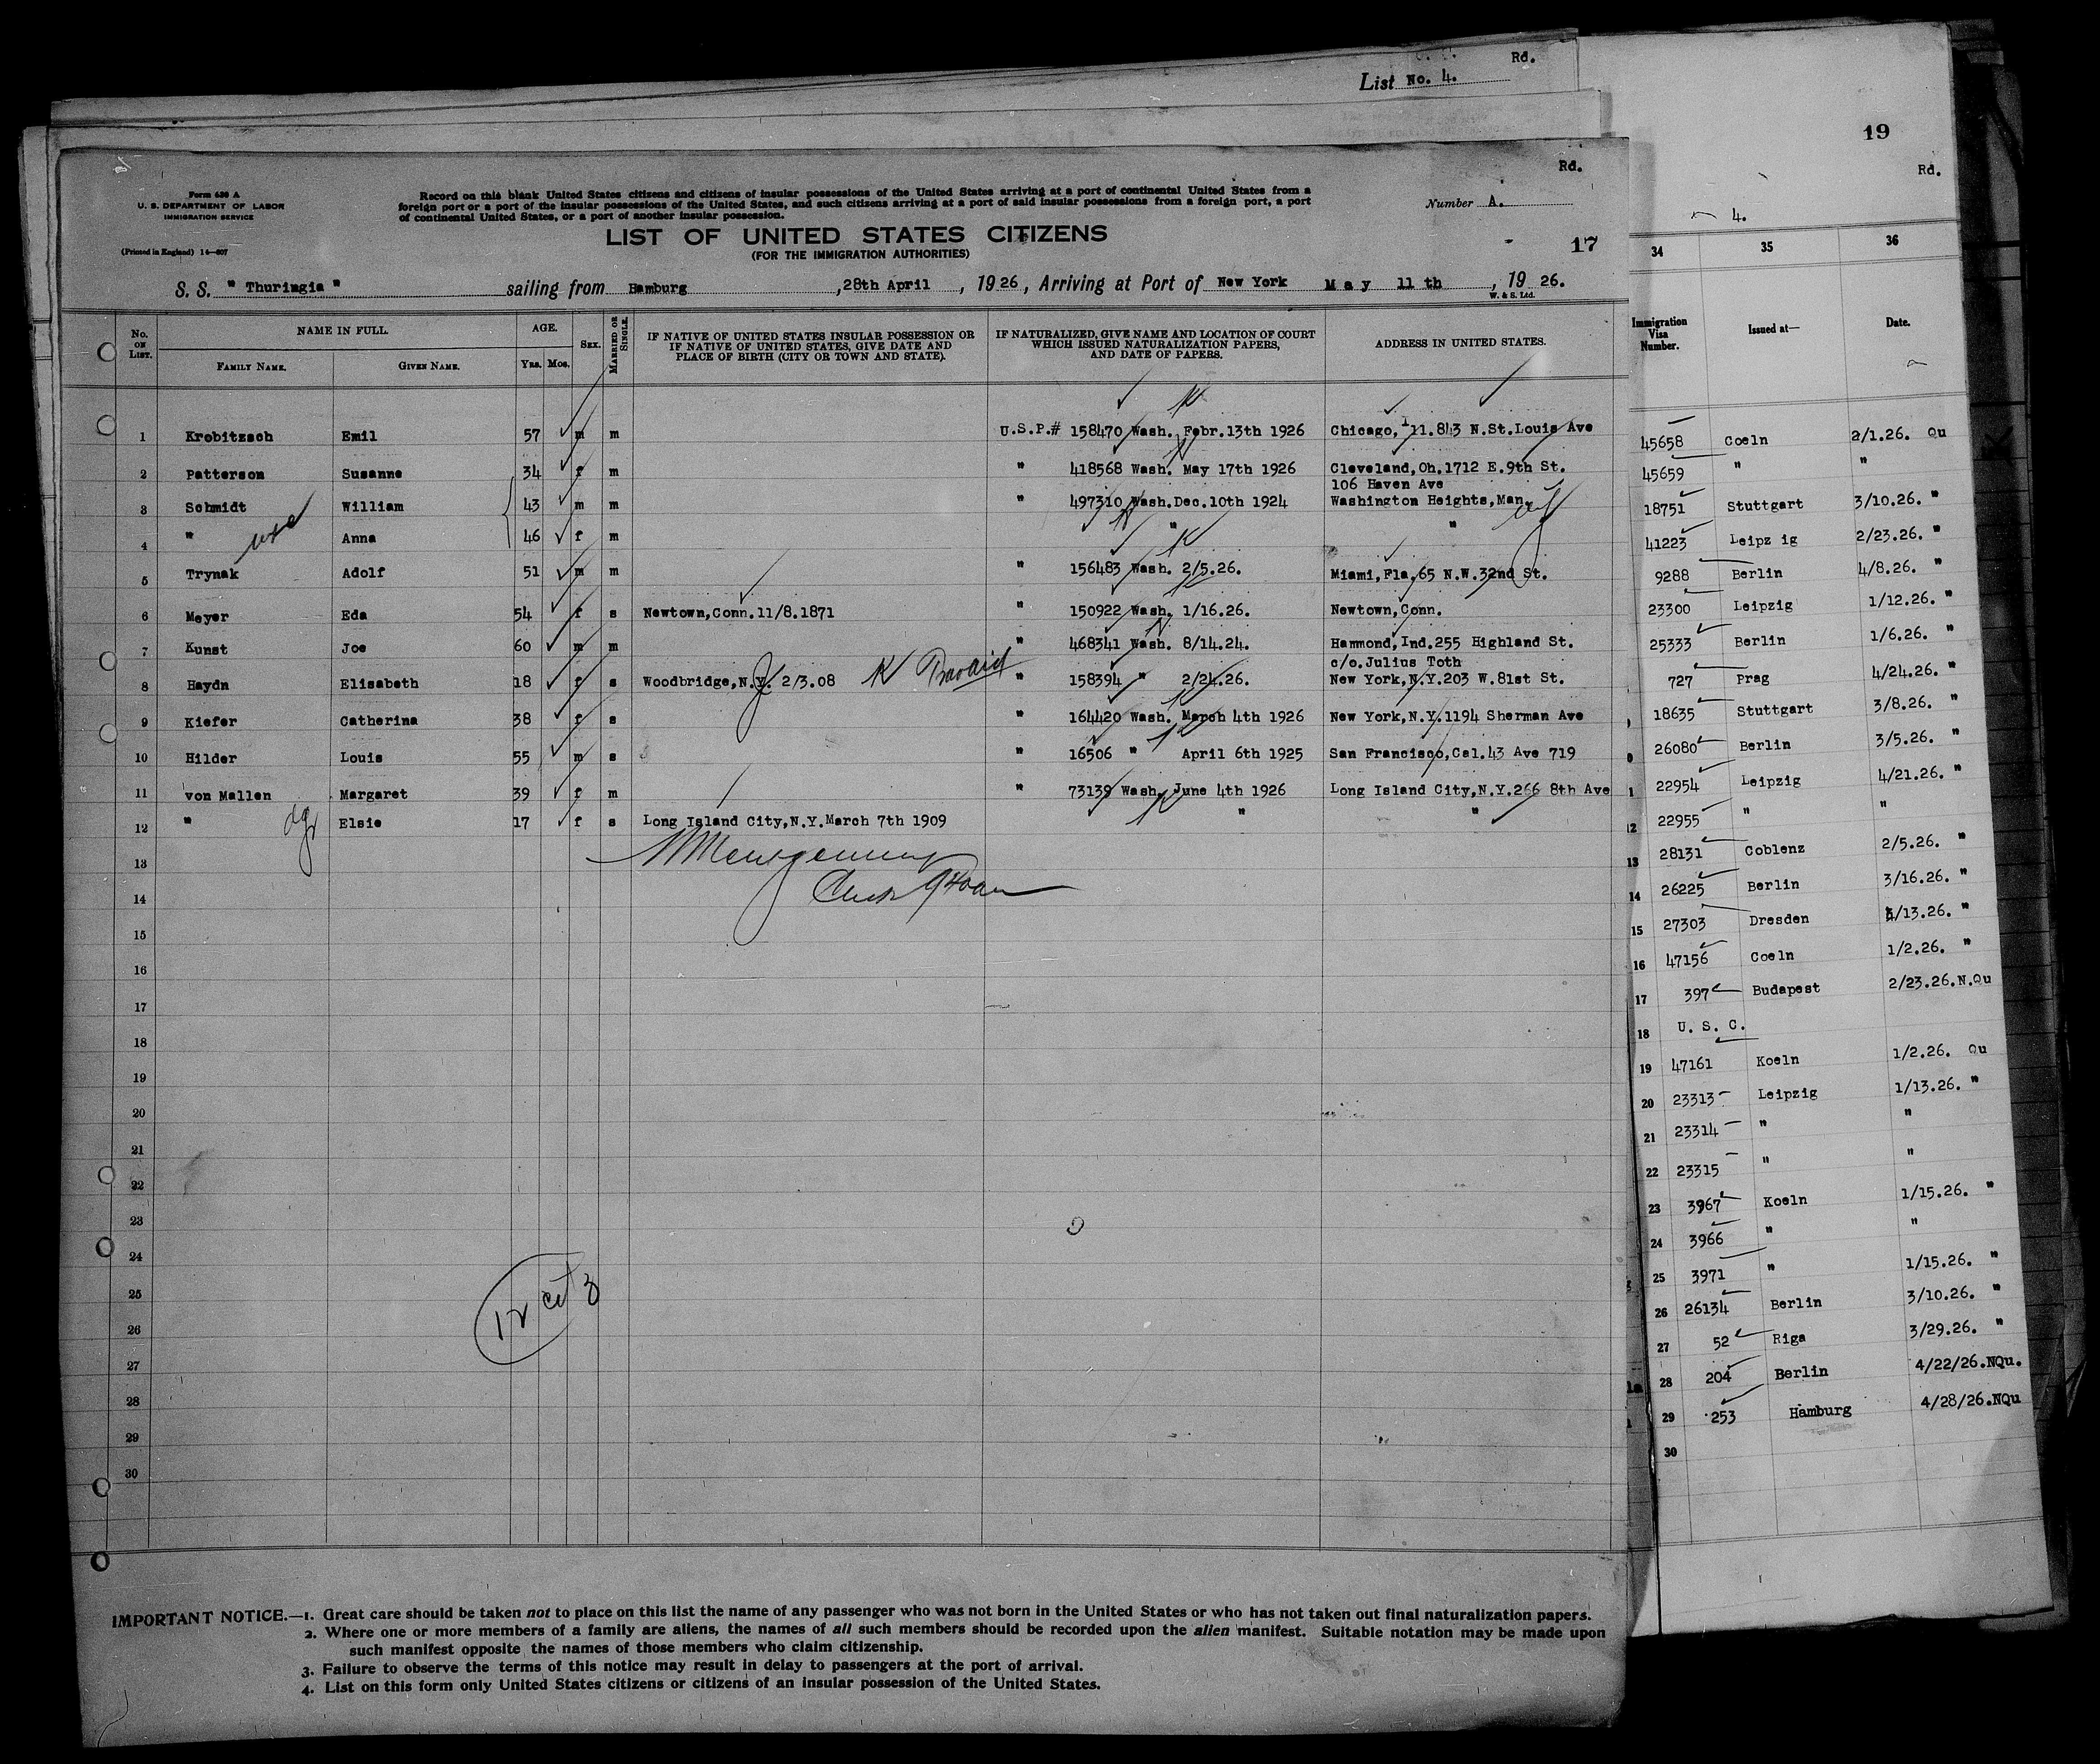 Rd.
List No. 4.
19
Rd.
4.
Form 630 A
U. S. DEPARTMENT OF LABOR
IMMIGRATION SERVICE
(Printed in England) 14—807
Record on this blank United States citizens and citizens of insular possessions of the United States arriving at a port of continental United States from a
foreign port or a port of the insular possessions of the United States, and such citizens arriving at a port of said insular possessions from a foreign port, a port
of continental United States, or a port of another insular possession.
Rd.
Number A.
LIST OF UNITED STATES CITIZENS
(FOR THE IMMIGRATION AUTHORITIES)
17
S. S. " Thuringia " sailing from Hamburg, 28th April, 1926, Arriving at Port of New York May 11 th, 19 26.
W. & S. Ltd.
No. ON LIST. NAME IN FULL. FAMILY NAME. GIVEN NAME. AGE. Yrs. Mos. SEX. MARRIED OR SINGLE. IF NATIVE OF UNITED STATES INSULAR POSSESSION OR IF NATIVE OF UNITED STATES, GIVE DATE AND PLACE OF BIRTH (CITY OR TOWN AND STATE). IF NATURALIZED, GIVE NAME AND LOCATION OF COURT WHICH ISSUED NATURALIZATION PAPERS, AND DATE OF PAPERS. ADDRESS IN UNITED STATES.
1 Krobitzsch Emil 57 m m U.S.P.# 158470 Wash. Febr.13th 1926 Chicago, 11.843 N.St.Louis Ave
2 Patterson Susanne 34 f m " 418568 Wash. May 17th 1926 Cleveland,Oh.1712 E.9th St.
106 Haven Ave
3 Schmidt William 43 m m " 497310 Wash.Dec.10th 1924 Washington Heights,Man.
4 " wife Anna 46 f m " "
5 Trynak Adolf 51 m m " 156483 Wash. 2/5.26. Miami,Fla.65 N.W.32nd St.
6 Meyer Eda 54 f s Newtown,Conn.11/8.1871 " 150922 Wash. 1/16.26. Newtown,Conn.
7 Kunst Joe 60 m m " 468341 Wash. 8/14.24. Hammond,Ind.255 Highland St.
c/o.Julius Toth
8 Haydn Elisabeth 18 f s Woodbridge,N.Y. 2/3.08 " 158394 " 2/24.26. New York,N.Y.203 W.81st St.
9 Kiefer Catherina 38 f s " 164420 Wash. March 4th 1926 New York,N.Y.1194 Sherman Ave
10 Hilder Louis 55 m s " 16506 " April 6th 1925 San Francisco,Cal.43 Ave 719
11 von Mallen Margaret 39 f m " 73139 Wash. June 4th 1926 Long Island City,N.Y.266 8th Ave
12 " dgr Elsie 17 f s Long Island City,N.Y.March 7th 1909 " "
13
14
15
16
17
18
19
20
21
22
23
24
25
26
27
28
29
30
12 cit z
IMPORTANT NOTICE.—1. Great care should be taken not to place on this list the name of any passenger who was not born in the United States or who has not taken out final naturalization papers.
2. Where one or more members of a family are aliens, the names of all such members should be recorded upon the alien manifest. Suitable notation may be made upon
such manifest opposite the names of those members who claim citizenship.
3. Failure to observe the terms of this notice may result in delay to passengers at the port of arrival.
4. List on this form only United States citizens or citizens of an insular possession of the United States.
34 35 36
Immigration Visa Number. Issued at— Date.
45658 Coeln 2/1.26. Qu
45659 " "
18751 Stuttgart 3/10.26. "
41223 Leipz ig 2/23.26. "
9288 Berlin 4/8.26. "
23300 Leipzig 1/12.26. "
25333 Berlin 1/6.26. "
727 Prag 4/24.26. "
18635 Stuttgart 3/8.26. "
26080 Berlin 3/5.26. "
22954 Leipzig 4/21.26. "
12 22955 " "
13 28131 Coblenz 2/5.26. "
14 26225 Berlin 3/16.26. "
15 27303 Dresden /13.26. "
16 47156 Coeln 1/2.26. "
17 397 Budapest 2/23.26.N.Qu
18 U. S. C.
19 47161 Koeln 1/2.26. Qu
20 23313 Leipzig 1/13.26. "
21 23314 " "
22 23315 " "
23 3967 Koeln 1/15.26. "
24 3966 " "
25 3971 " 1/15.26. "
26 26134 Berlin 3/10.26. "
27 52 Riga 3/29.26. "
28 204 Berlin 4/22/26.NQu.
29 253 Hamburg 4/28/26.NQu
30